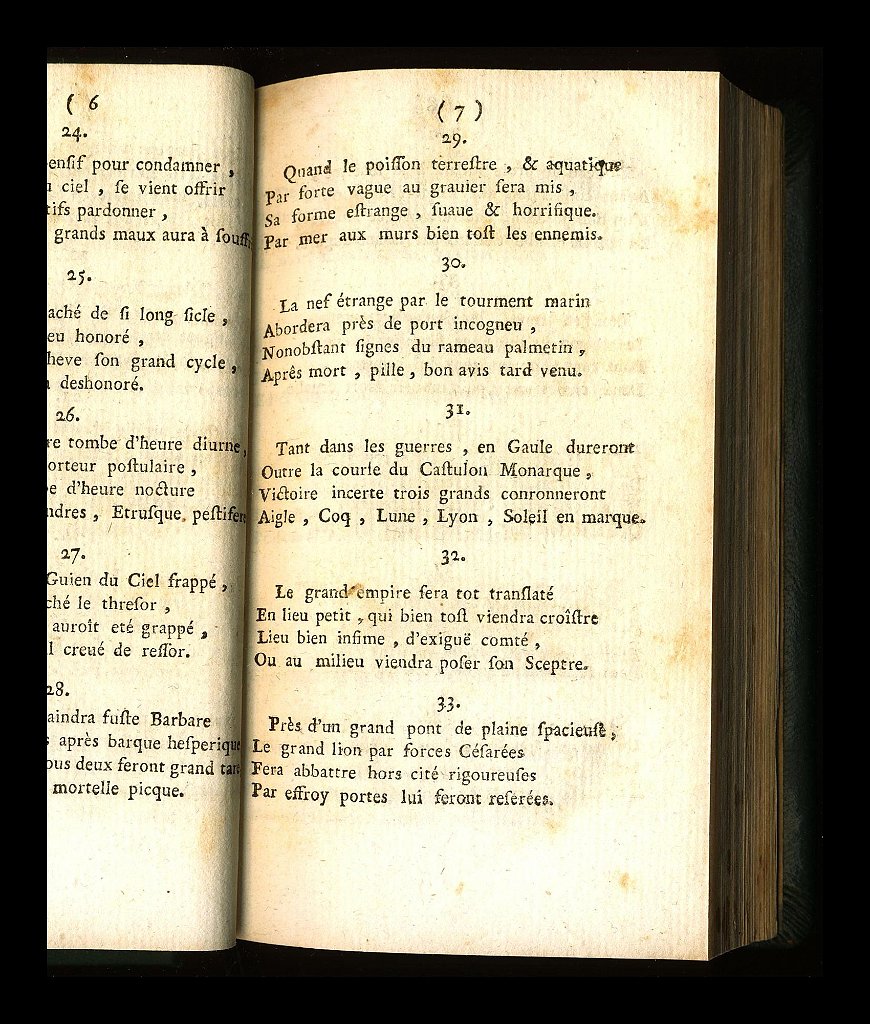 ( 6
24.
ensif pour condamner ,
ciel , se vient offrir
tifs pardonner ,
grands maux aura à souffr
25.
aché de si long sicle ,
eu honoré ,
heve son grand cycle ,
deshonoré.
26.
re tombe d'heure diurne,
orteur postulaire ,
e d'heure nocture
ndres , Etrusque, pestifere
27.
Guien du Ciel frappé ,
ché le thresor ,
auroît eté grappé ,
l creué de ressor.
28.
aindra fuste Barbare
s après barque hesperique
ous deux feront grand tare
mortelle picque.
( 7 )
29.
Quand le poisson terrestre , & aquatique
Par forte vague au grauier sera mis ,
Sa forme estrange , suaue & horrifique.
Par mer aux murs bien tost les ennemis.
30.
La nef étrange par le tourment marin
Abordera près de port incogneu ,
Nonobstant signes du rameau palmetin ,
Aprês mort , pille , bon avis tard venu.
31.
Tant dans les guerres , en Gaule dureront
Outre la course du Castulon Monarque ,
Victoire incerte trois grands conronneront
Aigle , Coq , Lune , Lyon , Soleil en marque.
32.
Le grand empire sera tot translaté
En lieu petit , qui bien tost viendra croîstre
Lieu bien infime , d'exiguë comté ,
Ou au milieu viendra poser son Sceptre.
33.
Près d'un grand pont de plaine spacieuse ,
Le grand lion par forces Césarées
Fera abbattre hors cité rigoureuses
Par effroy portes lui seront reserées.